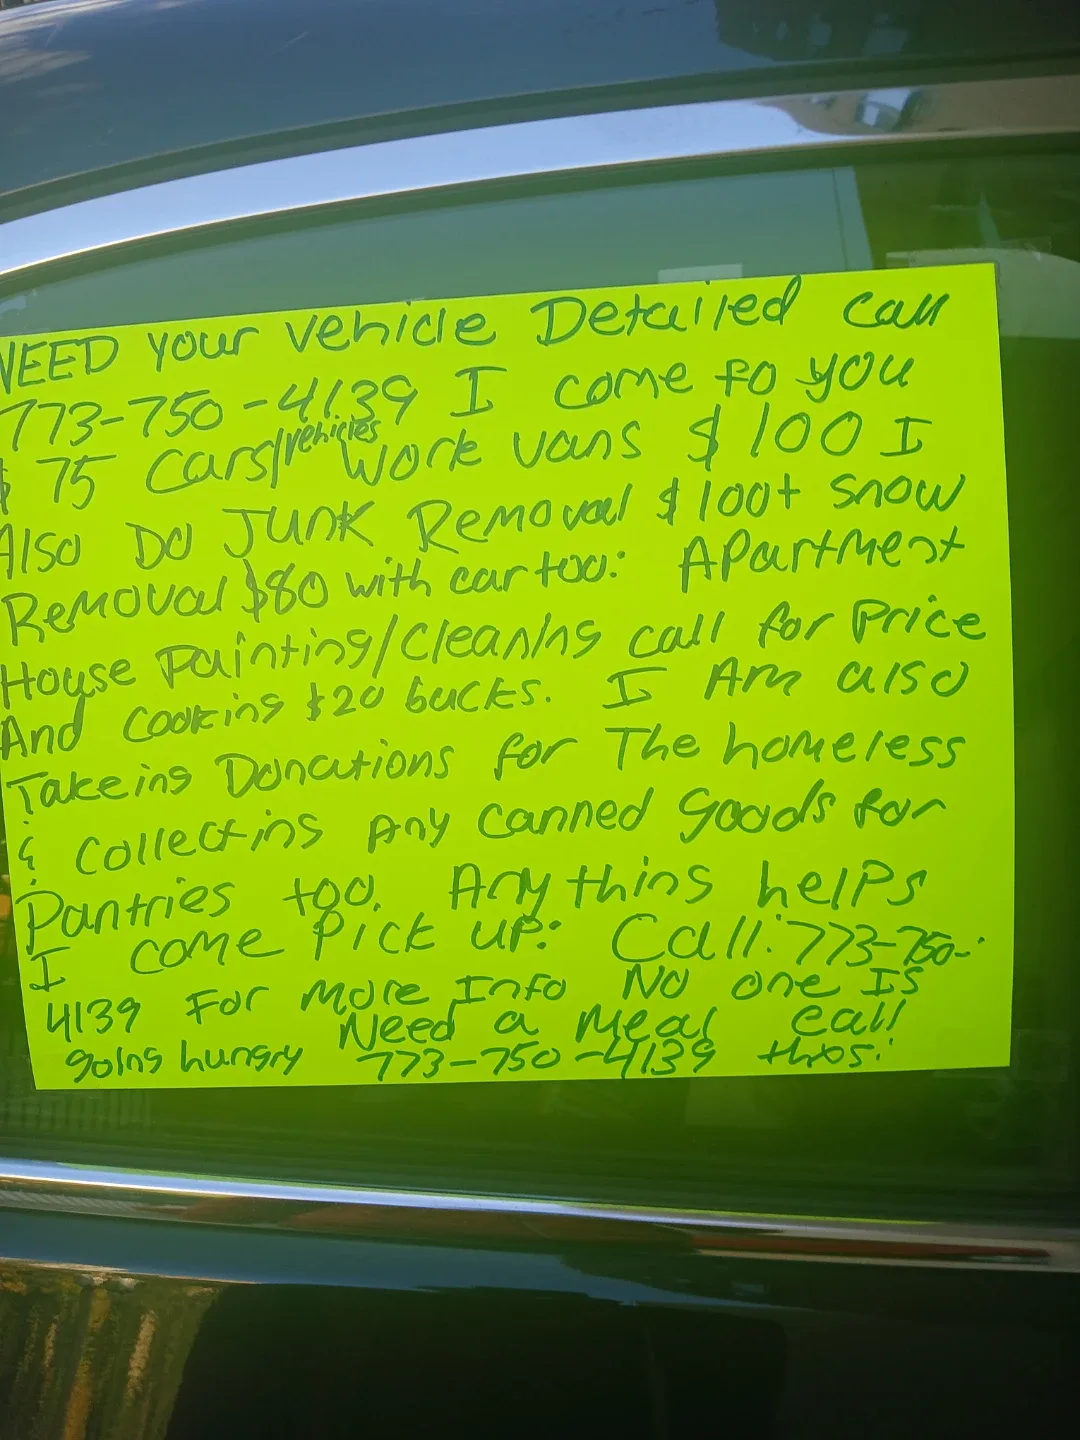 NEED your vehicle Detailed call
773-750-4139 I come to you
$ 75 Cars/vehicles Work vans $100 I
Also Do Junk Removal $100+ snow
Removal $80 with car too: Apartment
House Painting/Cleaning call for Price
And cooking $20 bucks. I Am also
Takeing Donations for The homeless
& Collecting Any canned goods for
Pantries too. Anything helps
I come Pick up: Call: 773-750-
4139 For More Info No one Is
going hungry Need a Meal call
773-750-4139